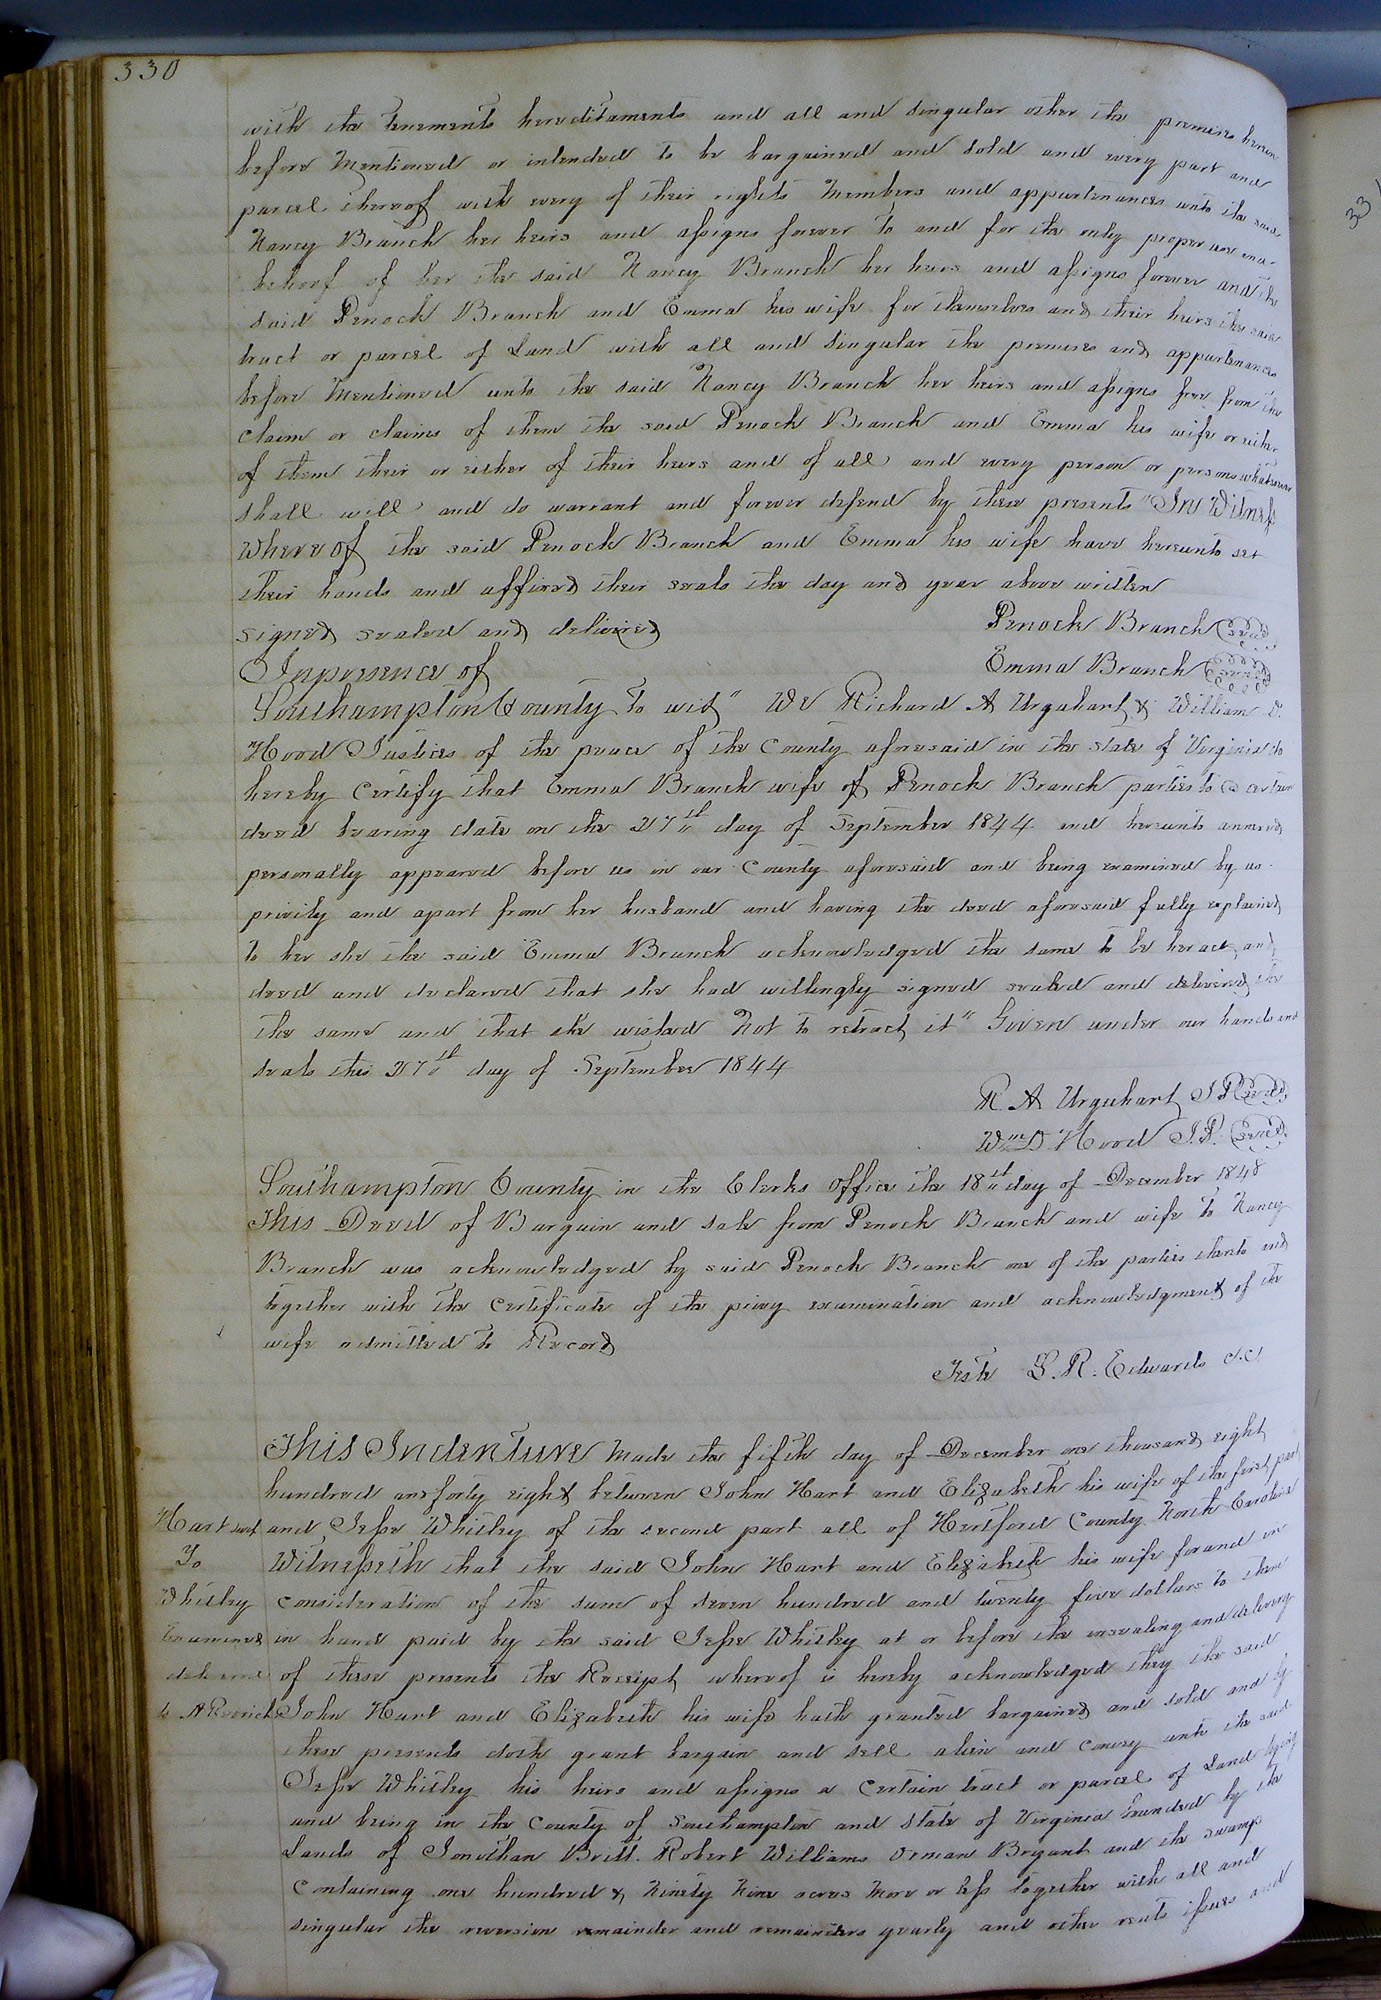 330
with the tenements hereditaments and all and singular other the premises herein
before Mentioned or intended to be bargained and sold and every part and
parcel thereof with every of their rights Members and appurtenances unto the said
Nancy Branch her heirs and assigns forever to and for the only proper use and
behoof of her the said Nancy Branch her heirs and assigns forever and the
said Penock Branch and Emma his wife for themselves and their heirs the said
tract or parcel of Land with all and singular the premises and appurtenances
before Mentioned unto the said Nancy Branch her heirs and assigns free from the
claim or claims of them the said Penock Branch and Emma his wife or either
of them their or either of their heirs and of all and every person or persons whatsoever
shall will and do warrant and forever defend by these presents "In Witness
Where of the said Penock Branch and Emma his wife have hereunto set
their hands and affixed their seals the day and year above written
signed sealed and delivered Penock Branch seal
In presence of Emma Branch seal
Southampton County to wit" We Richard A Urquhart & William D.
Hood Justices of the peace of the County aforesaid in the State of Virginia do
hereby Certify that Emma Branch wife of Penock Branch parties to a certain
deed bearing date on the 27th day of September 1844 and hereunto annexed
personally appeared before us in our County aforesaid and being examined by us
privily and apart from her husband and having the deed aforesaid fully explained
to her she the said Emma Branch acknowledged the same to be her act and
deed and declared that she had willingly signed sealed and delivered the
the same and that she wished Not to retract it" Given under our hands and
seals this 27th day of September 1844
R A Urquhart J.P. seal
Wm D Hood J.P. seal
Southampton County in the Clerks office the 18th day of December 1848
This Deed of Bargain and sale from Penock Branch and wife to Nancy
Branch was acknowledged by said Penock Branch one of the parties thereto and
together with the Certificate of the privy examination and acknowledgment of the
wife admitted to Record
Teste L. R. Edwards c.c.
This Indenture Made the fifth day of December one thousand eight
hundred and forty eight between John Hart and Elizabeth his wife of the first part
Hart and and Jesse Whitley of the second part all of Hertford County North Carolina
To Witnesseth that the said John Hart and Elizabeth his wife for and in
Whitley consideration of the sum of seven hundred and twenty five dollars to them
Examined in hand paid by the said Jesse Whitley at or before the ensealing and delivery
delivered of these presents the Receipt whereof is hereby acknowledged they the said
to John Hart and Elizabeth his wife hath granted bargained and sold and by
these presents doth grant bargain and sell alien and convey unto the said
Jesse Whitley his heirs and assigns a Certain tract or parcel of Land lying
and being in the County of Southampton and State of Virginia bounded by the
Lands of Jonathan Britt. Robert Williams Orman Bryant and the swamp
Containing one hundred & Ninety Nine acres More or less together with all and
singular the reversion remainder and remainders yearly and other rents issues and